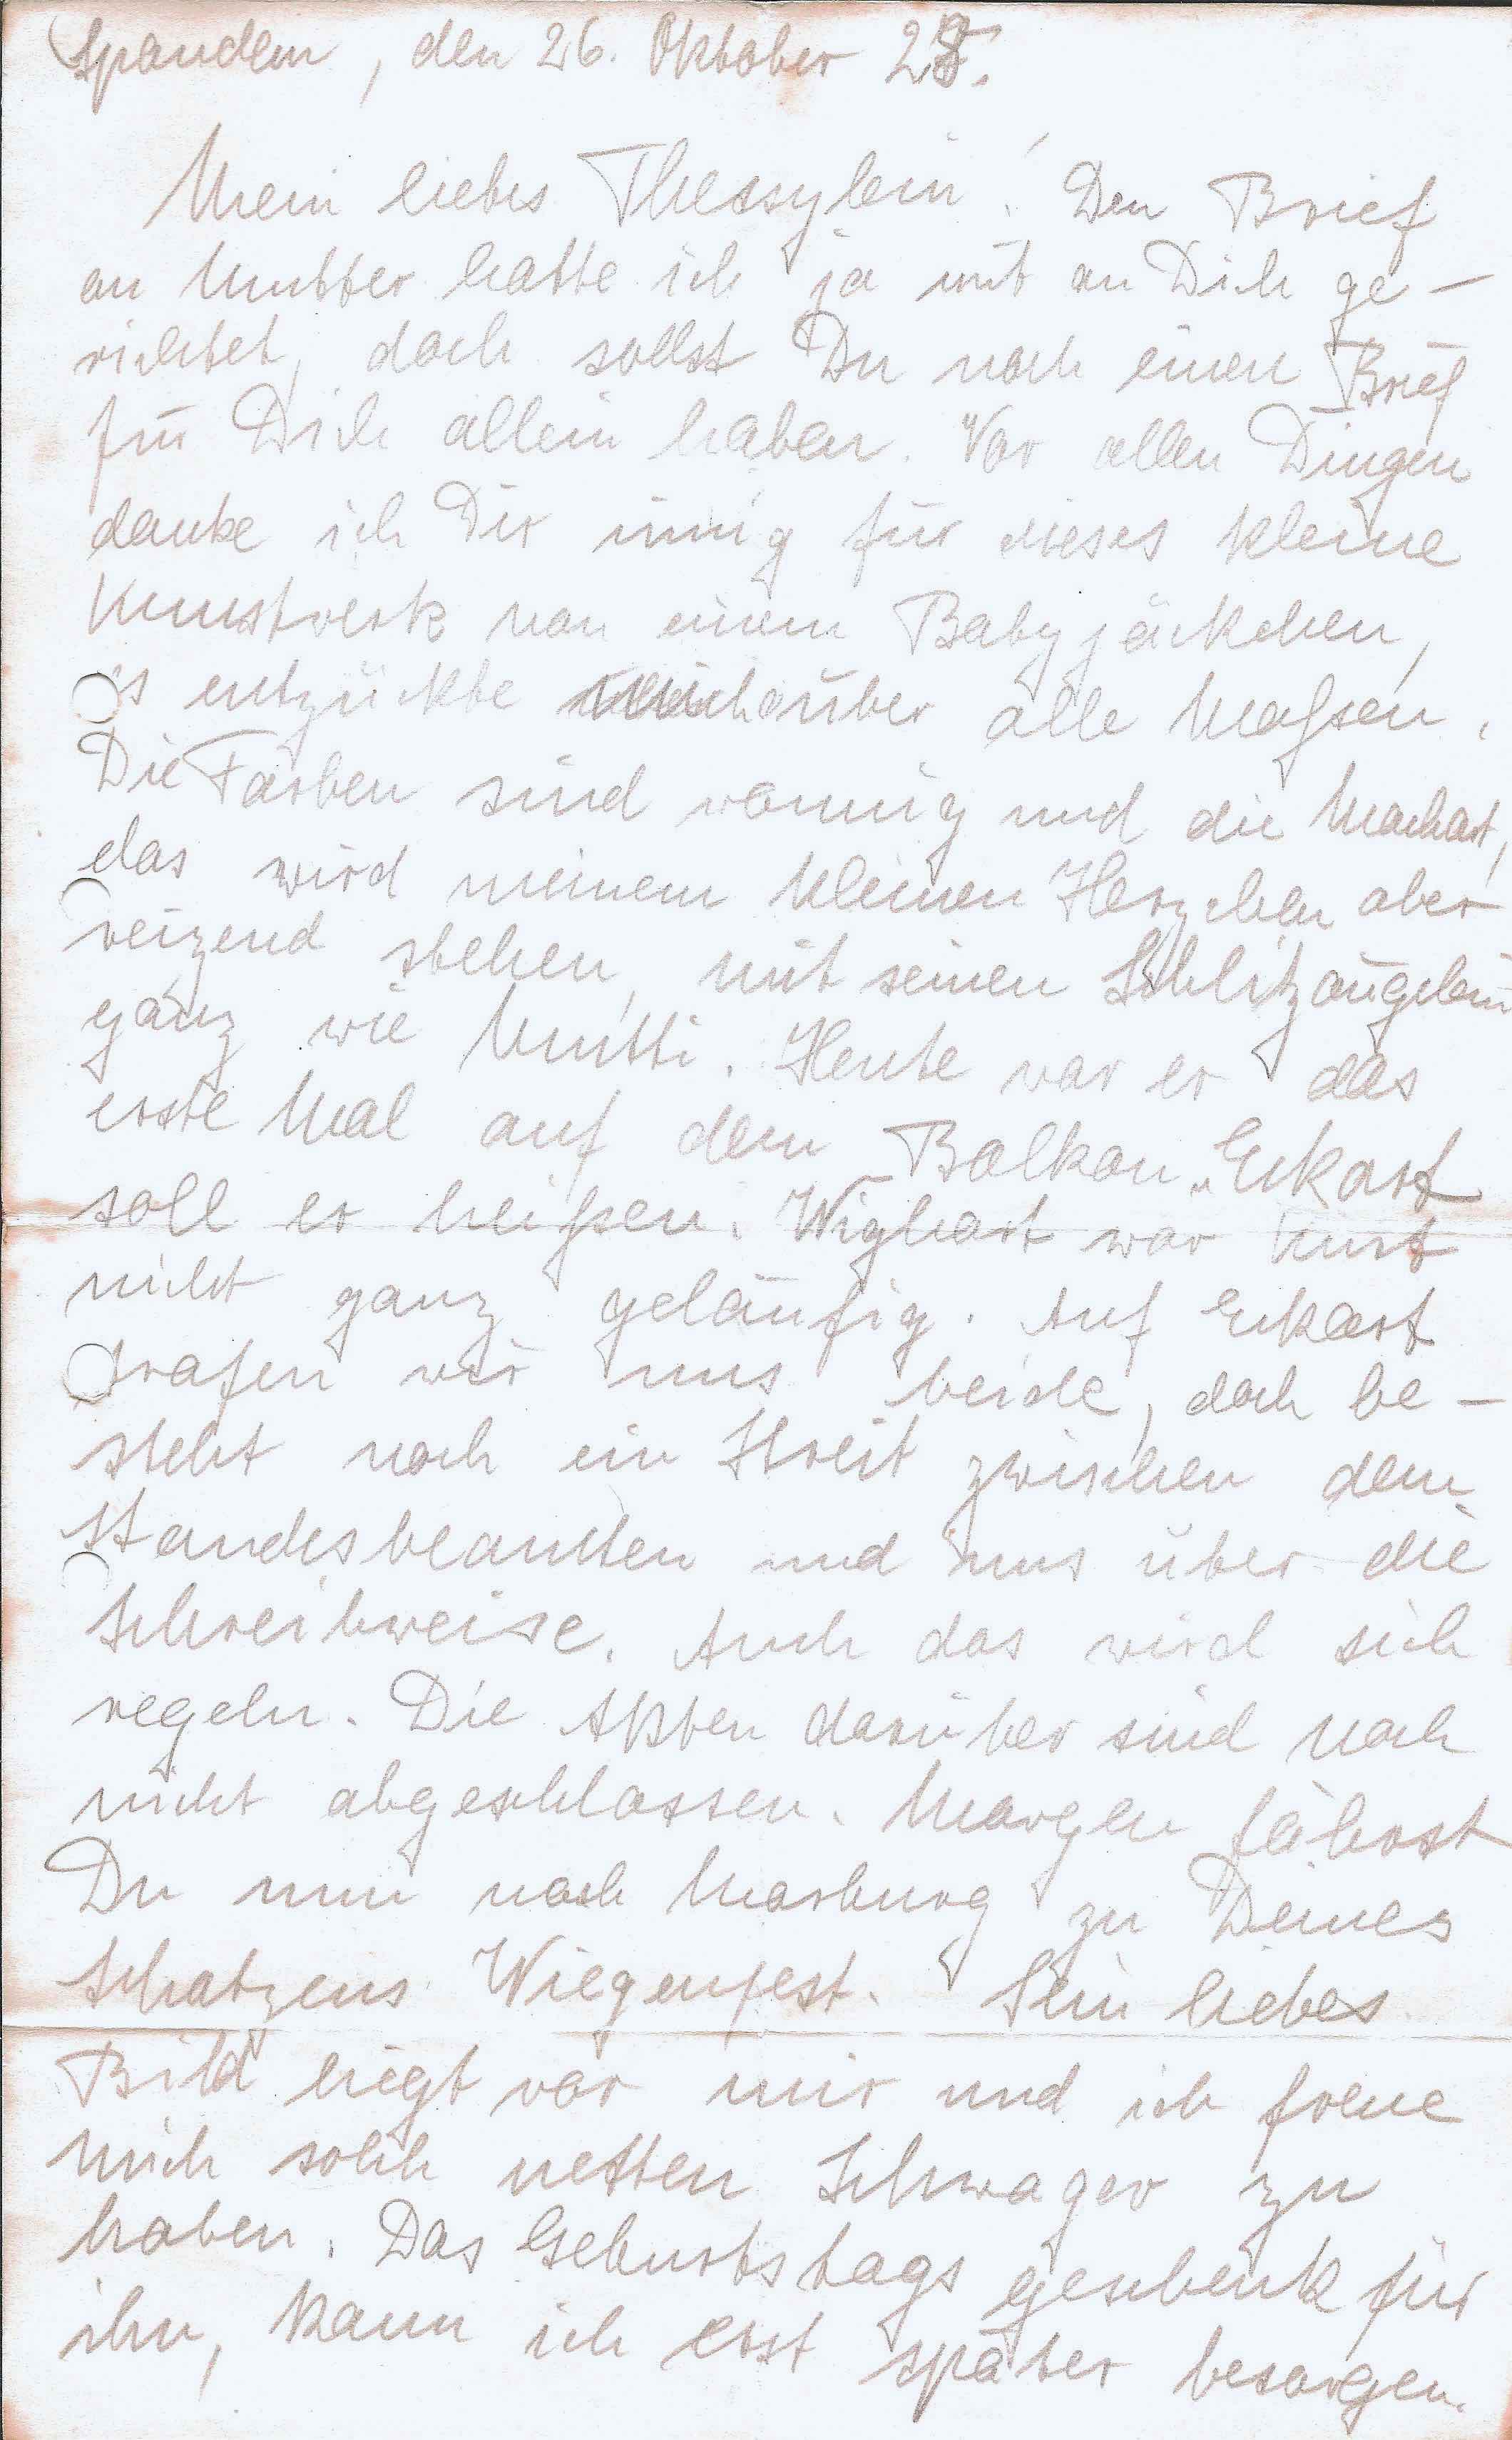 Spandau, den 26. Oktober 28.
Mein liebes Thessylein! Den Brief
an Mutter hatte ich ja mit an Dich ge-
richtet, doch sollst Du noch einen Brief
für Dich allein haben. Vor allen Dingen
danke ich Dir innig für dieses kleine
Kunstwerk von einem Babyjäckchen,
es entzückte mich über alle Maßen.
Die Farben sind wonnig und die Machart,
das wird meinem kleinen Herzchen aber
reizend stehen, mit seinen Schlitzäugelein
ganz wie Mutti. Heute war er das
erste Mal auf dem Balkon. „Eckart
soll er heißen. Wighart war Kurt
nicht ganz geläufig. Auf Eckart
trafen wir uns beide, doch be-
steht noch ein Streit zwischen dem
Standesbeamten und uns über die
Schreibweise. Auch das wird sich
regeln. Die Akten darüber sind noch
nicht abgeschlossen. Morgen fährst
Du nun nach Marburg zu Deines
Schatzens Wiegenfest. Sein liebes
Bild liegt vor mir und ich freue
mich solch netten Schwager zu
haben. Das Geburtstagsgeschenk für
ihn, kann ich erst später besorgen.